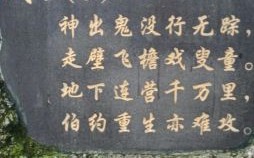 神出鬼没行无踪，
走壁飞檐戏叟童。
地下连营千万里，
伯约重生亦难攻。